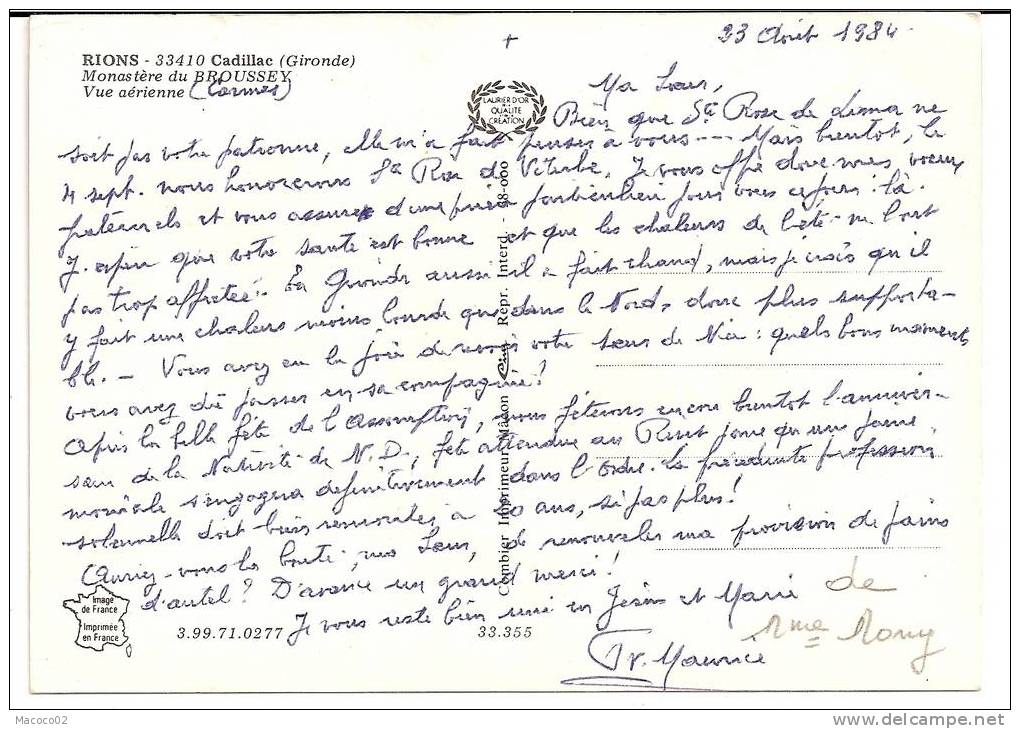 23 Août 1984.
RIONS - 33410 Cadillac (Gironde)
Monastère du BROUSSEY
Vue aérienne (Carmes)
LAURIER D'OR
QUALITE
CREATION
Ma Sœur,
Bien que Ste Rose de Lima ne
soit pas votre patronne, elle m'a fait penser à vous --- Mais bientôt, le
4 sept. nous honorerons Ste Rose de Viterbe. Je vous offre donc mes vœux
fraternels et vous assure d'une prière particulière pour vous ce jour là.
J'espère que votre santé est bonne et que les chaleurs de l'été ne l'ont
pas trop affectée. En Gironde aussi il a fait chaud, mais je crois qu'il
y fait une chaleur moins lourde que dans le Nord, donc plus supporta-
ble. - Vous avez eu la joie de revoir votre sœur de Nice : quels bons moments
vous avez dû passer en sa compagnie !
Après la belle fête de l'Assomption, nous fêterons encore bientôt l'anniver-
saire de la Nativité de N.D., fête attendue au car un jeune
moniale s'engagera définitivement dans l'Ordre. La précédente profession
solennelle doit bien remonter à 10 ans, si pas plus !
Auriez-vous la bonté, ma Sœur, de renouveler ma provision de pains
d'autel ? D'avance un grand merci !
Je vous reste bien uni en Jésus et Marie
Fr. Maurice
de
Mme Mony
Image
de France
Imprimée
en France
3.99.71.0277
33.355
Combier Imprimeur Mâcon
Repr. Interd. - 38-000
Macoco02
www.delcampe.net